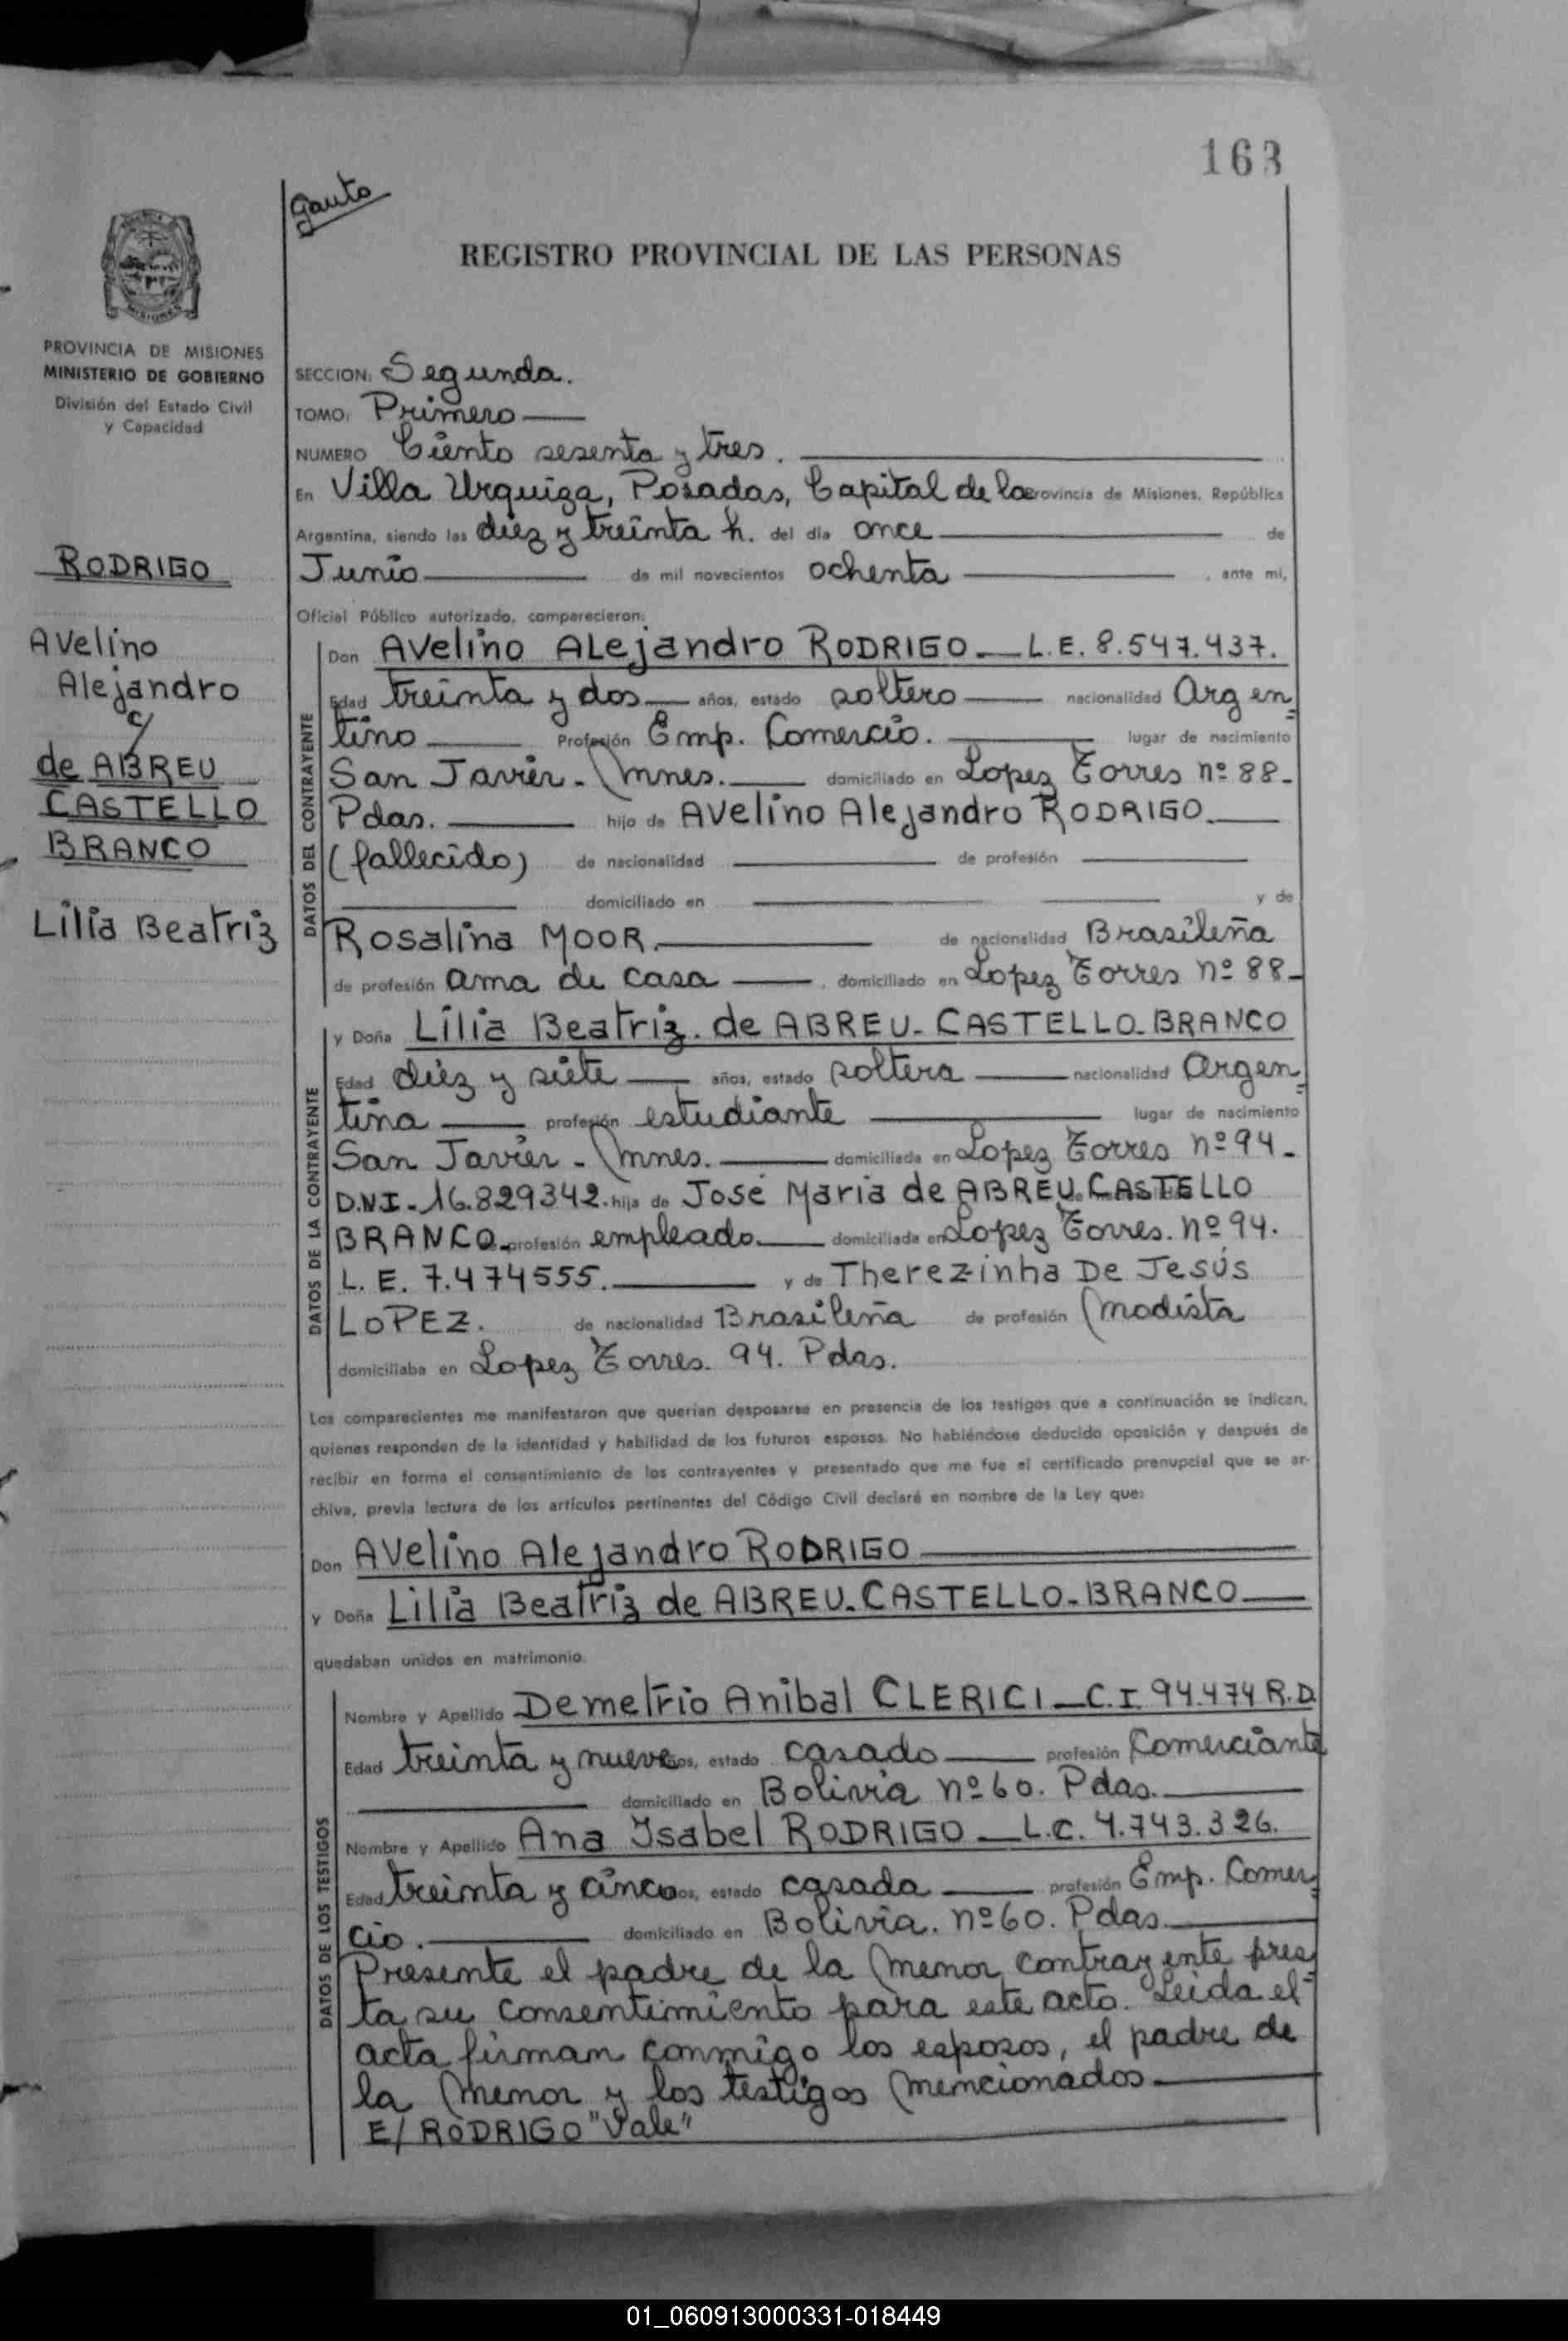 163
Gauto
REGISTRO PROVINCIAL DE LAS PERSONAS
MISIONES
PROVINCIA DE MISIONES
MINISTERIO DE GOBIERNO
División del Estado Civil
y Capacidad
RODRIGO
Avelino
Alejandro
c/
de ABREU
CASTELLO
BRANCO
Lilia Beatriz
SECCION: Segunda.
TOMO: Primero
NUMERO Ciento sesenta y tres.
En Villa Urquiza, Posadas, Capital de la Provincia de Misiones, República
Argentina, siendo las diez y treinta h. del día once de
Junio de mil novecientos ochenta, ante mí,
Oficial Público autorizado, comparecieron:
DATOS DEL CONTRAYENTE
Don Avelino Alejandro RODRIGO L.E. 8.547.437.
Edad treinta y dos años, estado soltero nacionalidad Argen=
tino Profesión Emp. Comercio. lugar de nacimiento
San Javier - Mnes. domiciliado en Lopez Torres nº 88-
Pdas. hijo de Avelino Alejandro RODRIGO.
(fallecido) de nacionalidad de profesión
domiciliado en y de
Rosalina MOOR. de nacionalidad Brasileña
de profesión ama de casa, domiciliado en Lopez Torres nº 88-
DATOS DE LA CONTRAYENTE
y Doña Lilia Beatriz. de ABREU-CASTELLO-BRANCO
Edad diez y siete años, estado soltera nacionalidad Argen=
tina profesión estudiante lugar de nacimiento
San Javier - Mnes. domiciliada en Lopez Torres nº 94-
D.N.I-16.829342. hija de José Maria de ABREU CASTELLO
BRANCO. profesión empleado. domiciliada en Lopez Torres. nº 94.
L.E. 7.474555. y de Therezinha De Jesús
LOPEZ. de nacionalidad Brasileña de profesión Modista
domiciliaba en Lopez Torres. 94. Pdas.
Los comparecientes me manifestaron que querían desposarse en presencia de los testigos que a continuación se indican,
quienes responden de la identidad y habilidad de los futuros esposos. No habiéndose deducido oposición y después de
recibir en forma el consentimiento de los contrayentes y presentado que me fue el certificado prenupcial que se ar-
chiva, previa lectura de los artículos pertinentes del Código Civil declaré en nombre de la Ley que:
Don Avelino Alejandro RODRIGO
y Doña Lilia Beatriz de ABREU-CASTELLO-BRANCO
quedaban unidos en matrimonio.
DATOS DE LOS TESTIGOS
Nombre y Apellido Demetrio Anibal CLERICI - C.I. 94.474 R.D.
Edad treinta y nueve años, estado casado profesión Comerciante
domiciliado en Bolivia nº 60. Pdas.
Nombre y Apellido Ana Isabel RODRIGO - L.C. 4.743.326.
Edad treinta y cinco años, estado casada profesión Emp. Comer=
cio. domiciliado en Bolivia. nº 60. Pdas.
Presente el padre de la menor contrayente pres=
ta su consentimiento para este acto. Leida el
acta firman conmigo los esposos, el padre de
la menor y los testigos mencionados.
E/ RODRIGO "Vale"
01_060913000331-018449